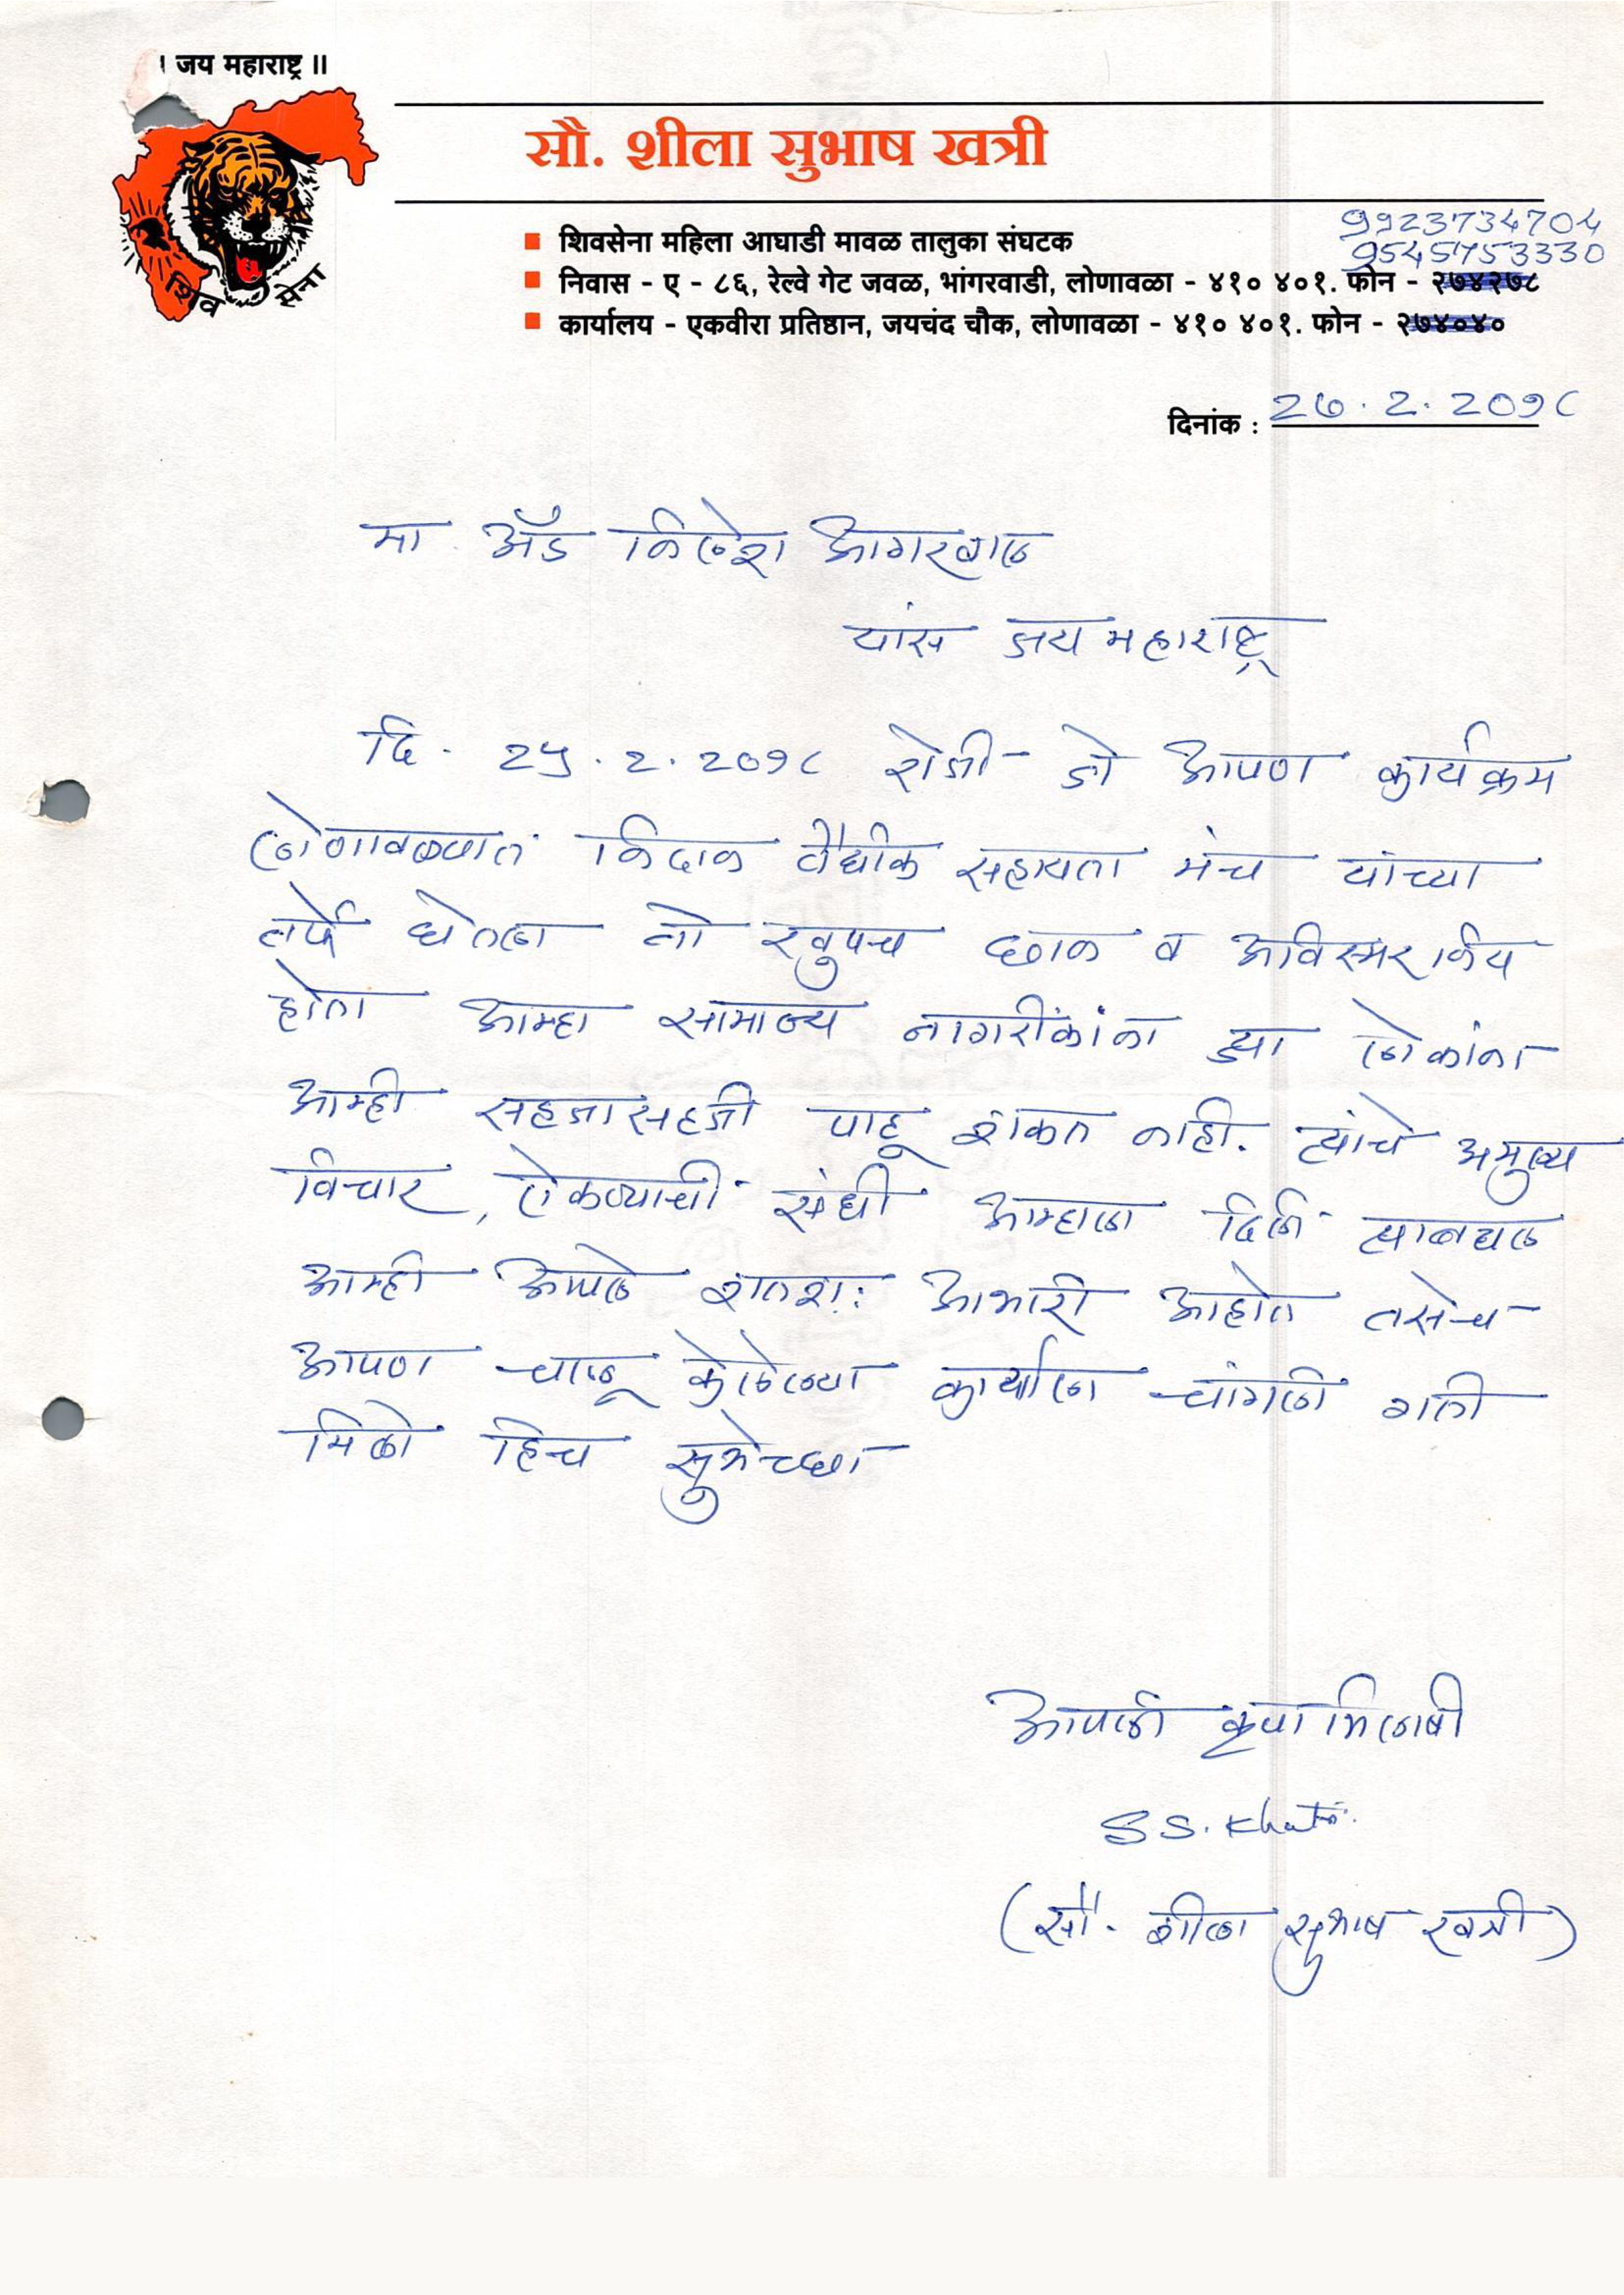 । जय महाराष्ट्र ॥
शिव सेना
सौ. शीला सुभाष खत्री
9923734704
9545753330
शिवसेना महिला आघाडी मावळ तालुका संघटक
निवास - ए - ८६, रेल्वे गेट जवळ, भांगरवाडी, लोणावळा - ४१० ४०१. फोन - २७४२७८
कार्यालय - एकवीरा प्रतिष्ठान, जयचंद चौक, लोणावळा - ४१० ४०१. फोन - २७४०४०
दिनांक : २७.२.२०१८
मा. ॲड निलेश आगरवाल
यांस जय महाराष्ट्र
दि. २५.२.२०१८ रोजी जो आपण कार्यक्रम
लोणावळ्यात निदान वैधीक सहायता मंच यांच्या
तर्फे घेतला तो खुपच छान व अविस्मरणिय
होता आम्हा सामान्य नागरीकांना ह्या लोकांना
आम्ही सहजासहजी पाहू शकत नाही. त्यांचे अमुल्य
विचार, ऐकण्याची संधी आम्हाला दिली त्याबद्दल
आम्ही आपले शतशः आभारी आहोत तसेच
आपण चालू केलेल्या कार्याला चांगली गती
मिळो हिच सुभेच्छा
आपली कृपाभिलाषी
S.S. Khatri
(सौ. शीला सुभाष खत्री)